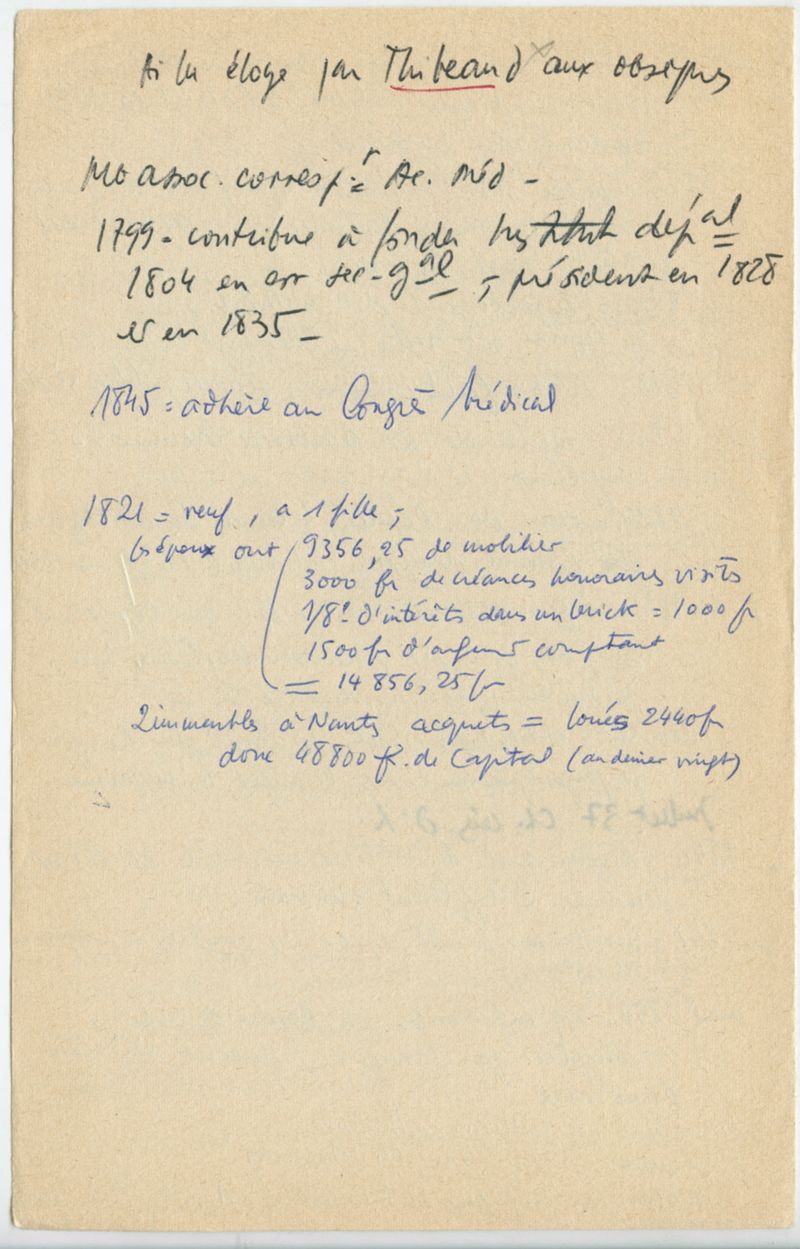 Ai lu éloge par Thibeaud aux obsèques
Mb assoc. corresp.r Ac. Méd -
1799 - contribue à fonder Institut dépal
1804 en est sec-gal , président en 1828
et en 1835 -
1845 = adhère au Congrès Médical
1821 = veuf, a 1 fille ,
les époux ont 9356,25 de mobilier
3000 fr de créances honoraires visites
1/8e d'intérêts dans un brick = 1000 fr
1500 fr d'argent comptant
= 14 856,25 fr
2 immeubles à Nantes acquets = loués 2440 fr
donc 48800 fr. de Capital (au denier vingt)